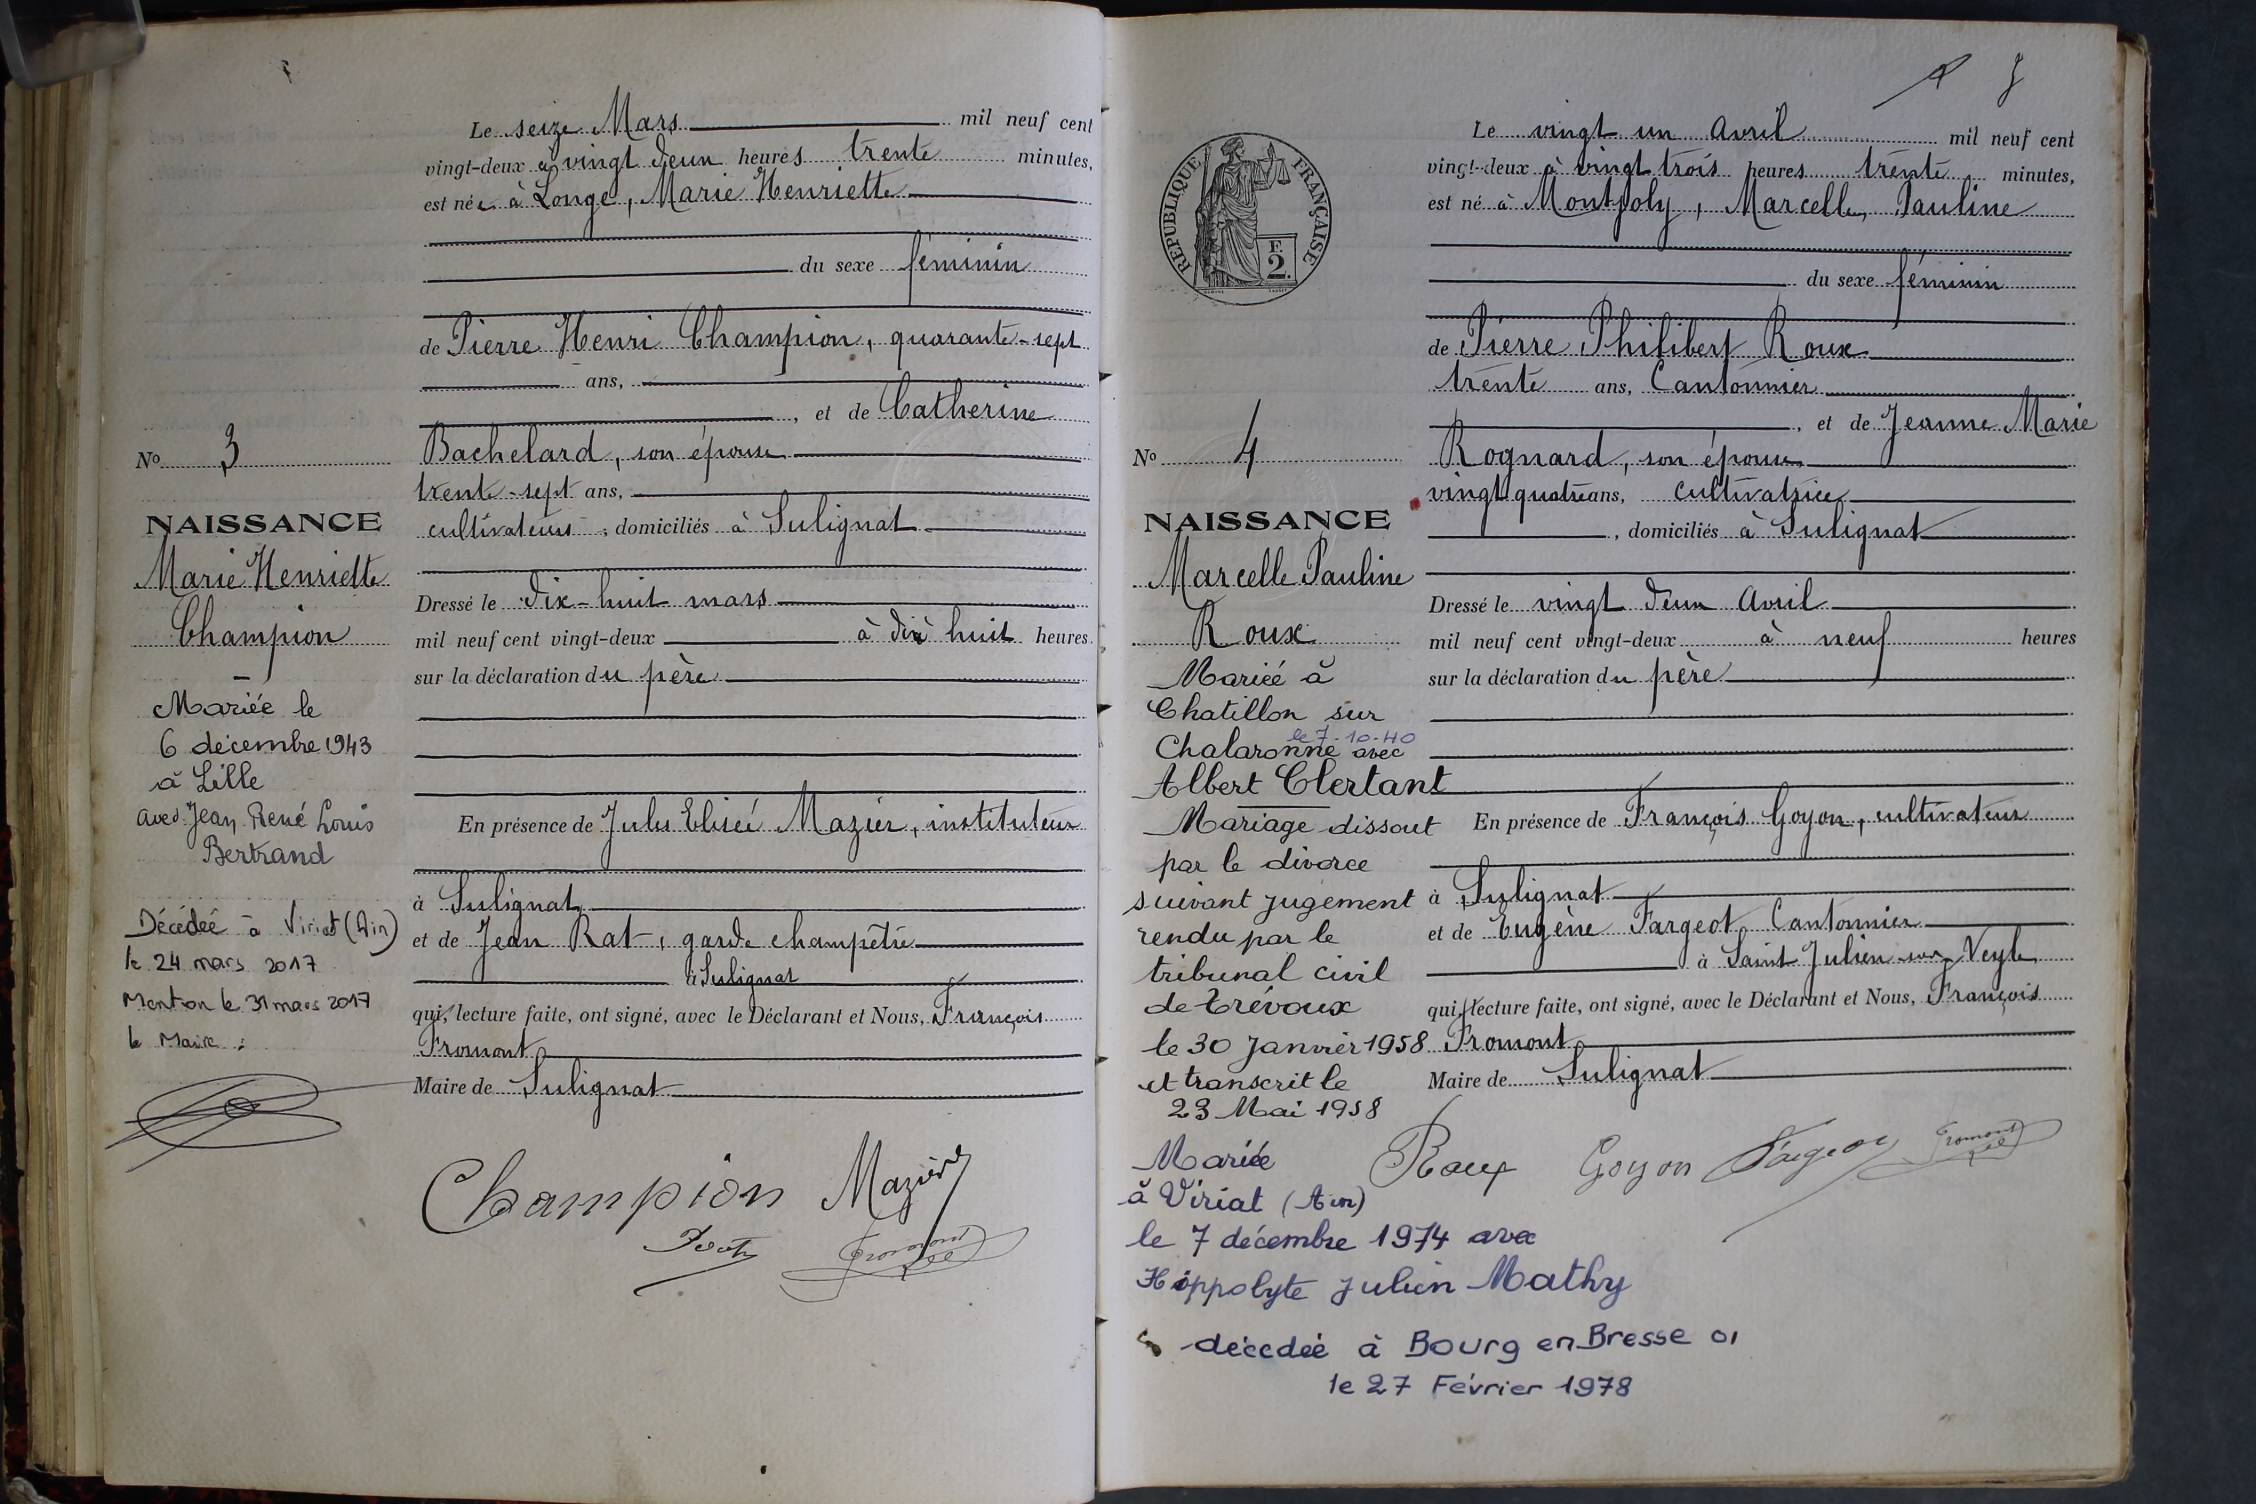 Le seize Mars mil neuf cent
vingt-deux à vingt deux heures trente minutes,
est née à Longe, Marie Henriette
du sexe féminin
de Pierre Henri Champion, quarante-sept
ans,
, et de Catherine
No 3
Bachelard, son épouse
trente-sept ans,
NAISSANCE
cultivateurs, domiciliés à Sulignat
Marie Henriette
Champion
Dressé le dix-huit mars
mil neuf cent vingt-deux à dix huit heures
sur la déclaration du père
Mariée le
6 décembre 1943
à Lille
avec Jean René Louis
Bertrand
En présence de Jules Elisée Mazier, instituteur
à Sulignat
et de Jean Rat, garde champêtre
à Sulignat
qui, lecture faite, ont signé, avec le Déclarant et Nous, François
Fromont
Maire de Sulignat
Décédée à Viriat (Ain)
le 24 mars 2017
Mention le 31 mars 2017
le Maire :
Champion Mazier
Fromont
Le vingt un Avril mil neuf cent
vingt-deux à vingt trois heures trente minutes,
est né à Montpoly, Marcelle, Pauline
RÉPUBLIQUE FRANÇAISE
F.
2
du sexe féminin
de Pierre Philibert Roux
trente ans, Cantonnier
, et de Jeanne Marie
No 4
Rognard, son épouse
vingt quatre ans, cultivatrice
NAISSANCE
, domiciliés à Sulignat
Marcelle Pauline
Roux
Dressé le vingt deux Avril
mil neuf cent vingt-deux à neuf heures
sur la déclaration du père
Mariée à
Chatillon sur
le 7-10-40
Chalaronne avec
Albert Clertant
Mariage dissout
par le divorce
suivant jugement
rendu par le
tribunal civil
de Trévoux
le 30 Janvier 1958
et transcrit le
23 Mai 1958
En présence de François Goyon, cultivateur
à Sulignat
et de Eugène Fargeot Cantonnier
à Saint Julien sur Veyle
qui, lecture faite, ont signé, avec le Déclarant et Nous, François
Fromont
Maire de Sulignat
Roux Goyon Fargeot Fromont
Mariée
à Viriat (Ain)
le 7 décembre 1974 avec
Hippolyte Julien Mathy
décédée à Bourg en Bresse 01
le 27 Février 1978